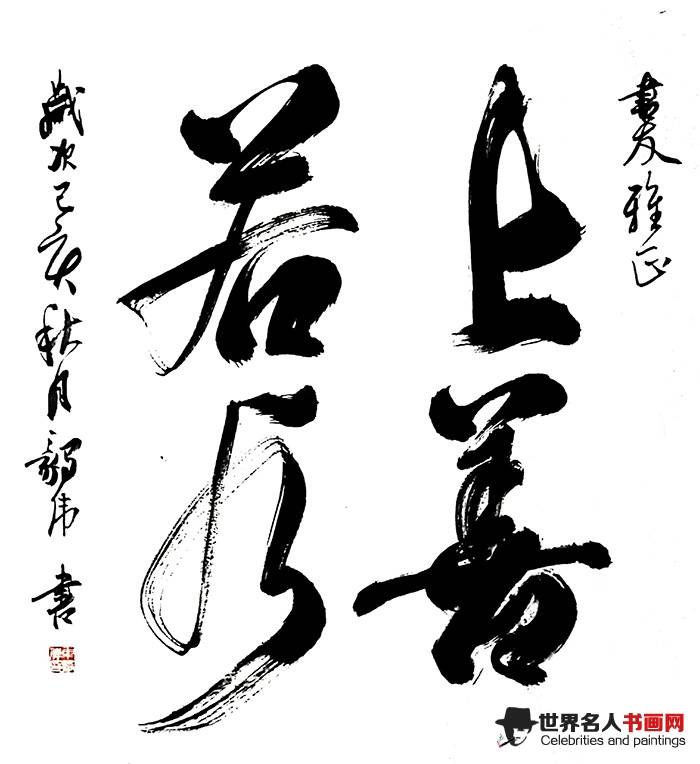 書友雅正
上善
若水
歲次己亥秋月毅伟書
世界名人书画网
Celebrities and paintings